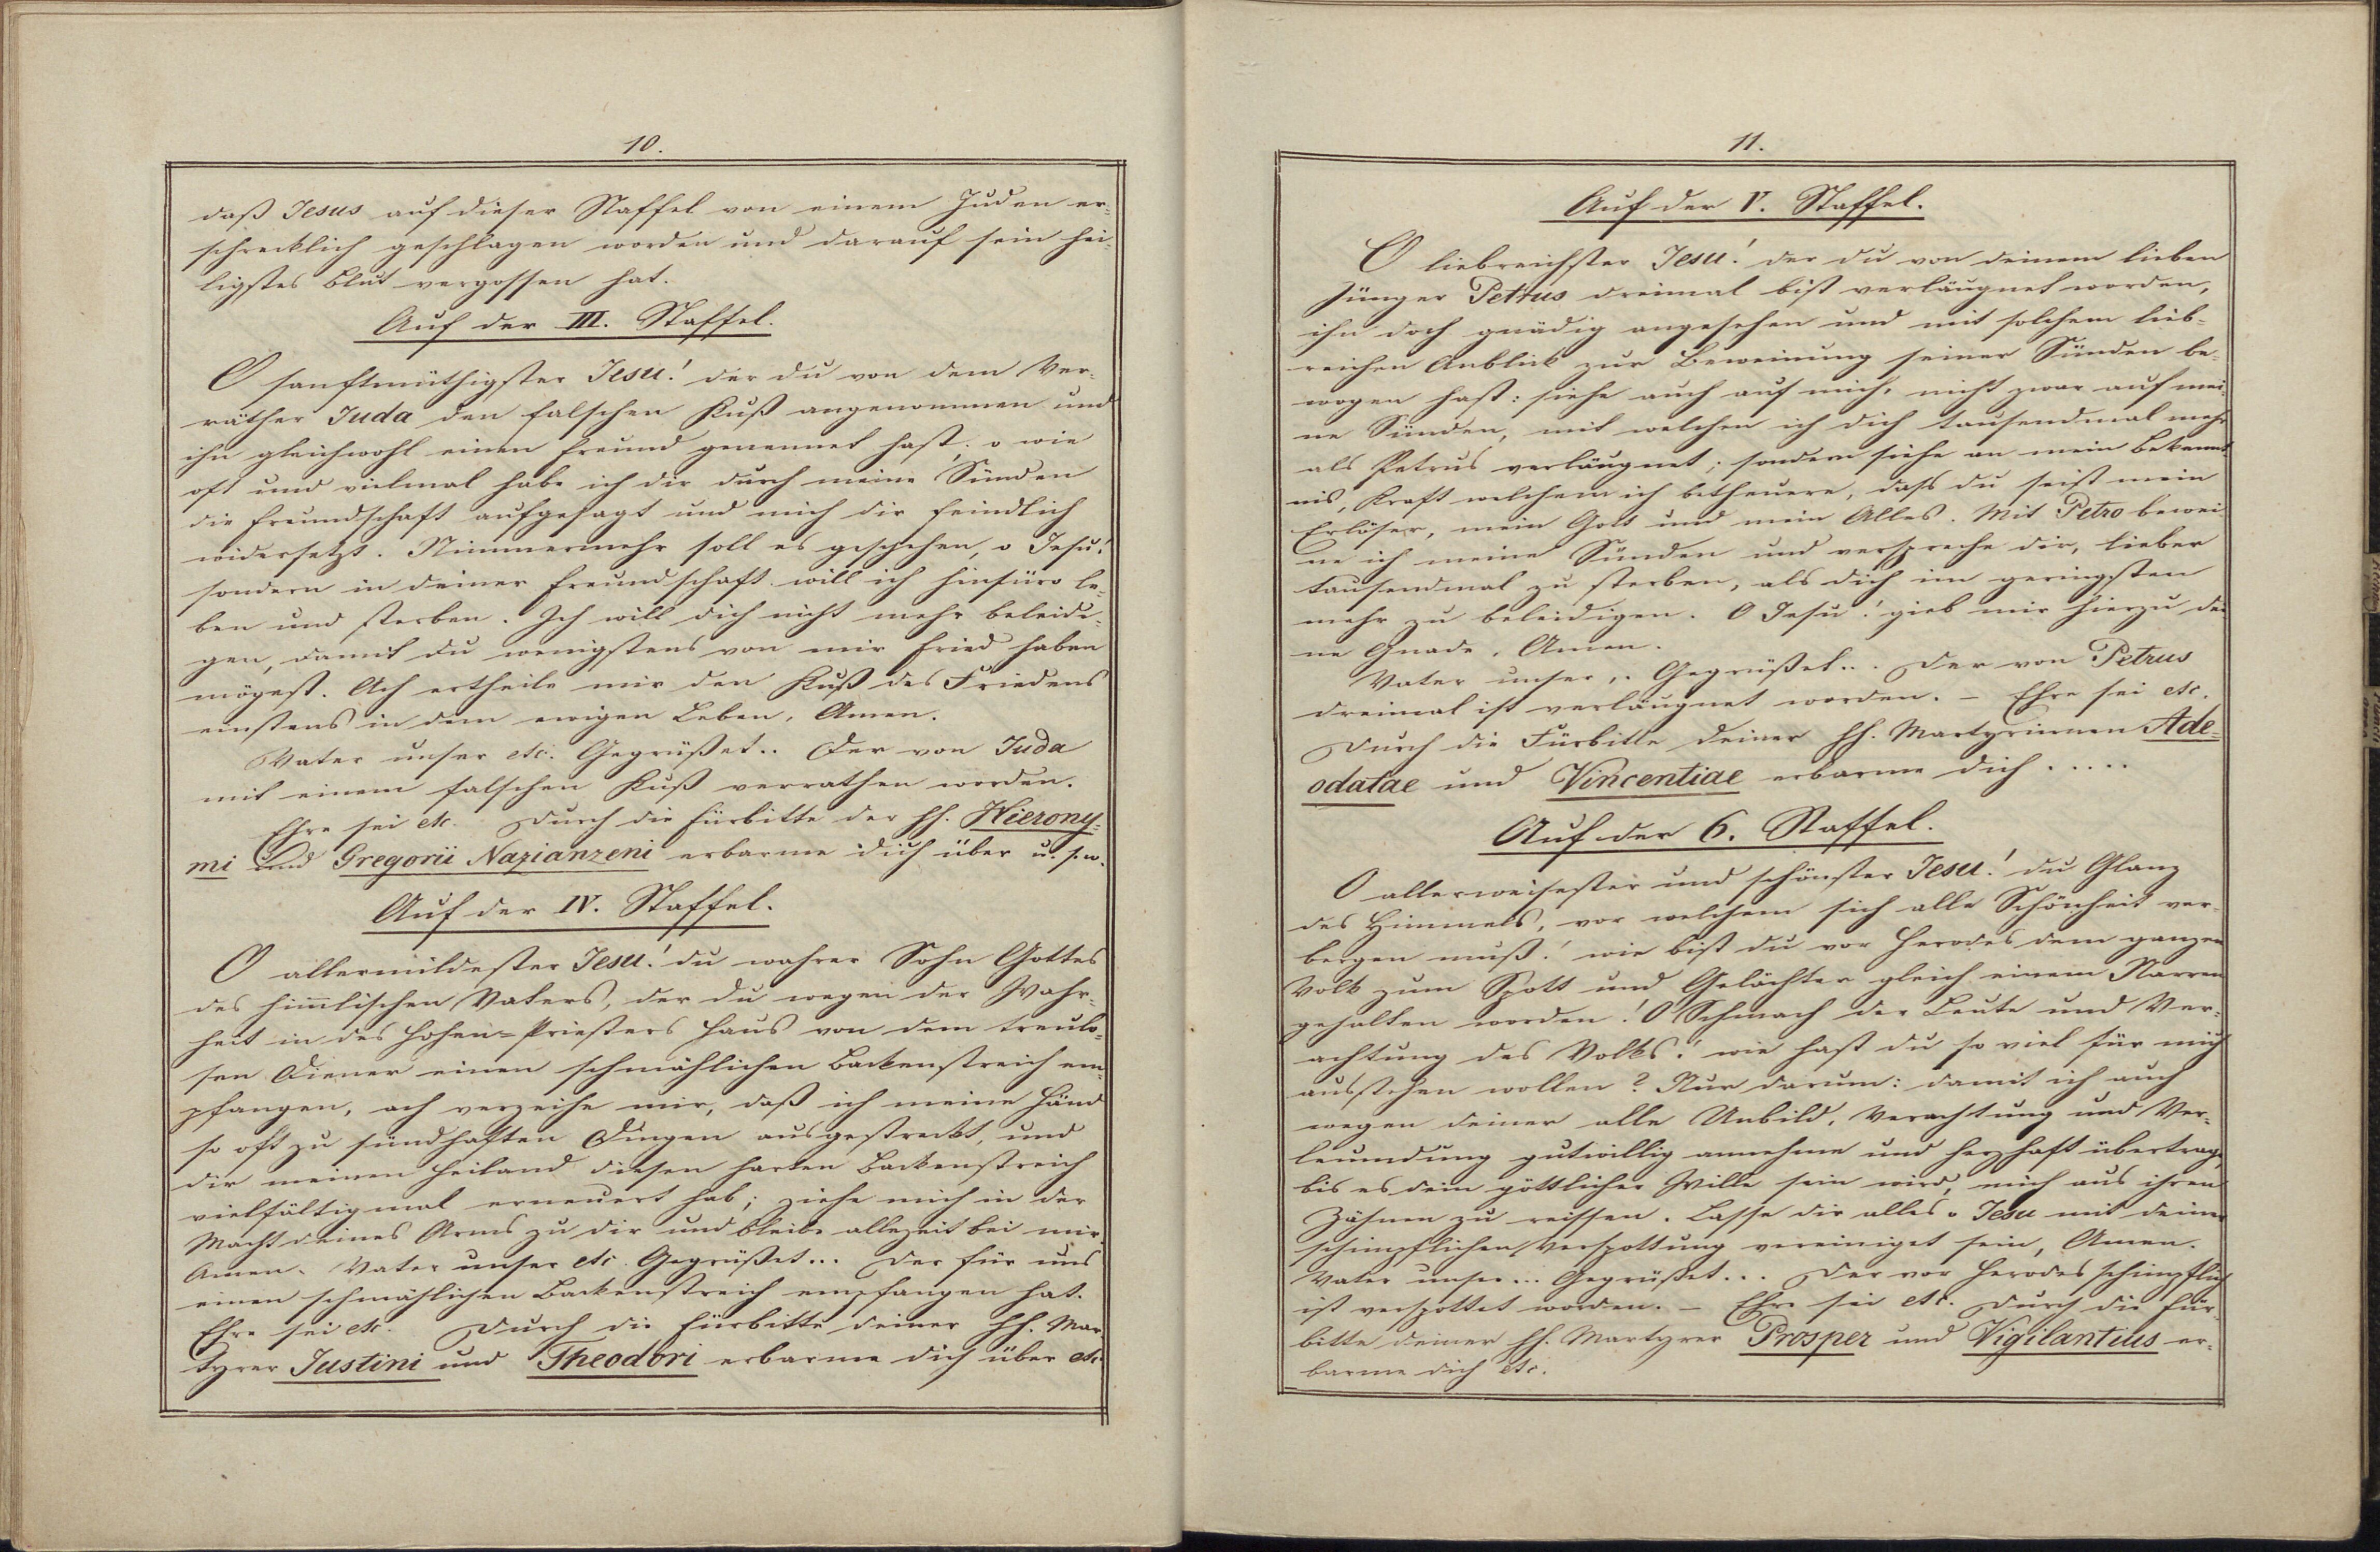 10.
daß Jesus auf dieser Staffel von einem Juden er-
schrecklich geschlagen worden und darauf sein hei-
ligstes Blut vergossen hat.
Auf der III. Staffel.
O sanftmüthigster Jesu! der du von dem Ver-
räther Juda den falschen Kuß angenommen und
ihn gleichwohl einen Freund genennet hast, o wie
oft und vielmal habe ich dir durch meine Sünden
die Freundschaft aufgesagt und mich dir feindlich
widersetzt. Nimmermehr soll es geschehen, o Jesu!
sondern in deiner Freundschaft will ich hinfüro le-
ben und sterben. Ich will dich nicht mehr beleidi-
gen, damit du wenigstens von mir Fried haben
mögest. Ach ertheile mir den Kuß des Friedens
einstens in dem ewigen Leben, Amen.
Vater unser etc. Gegrüßet.. Der von Juda
mit einem falschen Kuß verrathen worden.
Ehre sei etc. Durch die Fürbitte der hh. Hierony-
mi und Gregorii Nazianzeni erbarme dich über u. s. w.
Auf der IV. Staffel.
O allermildester Jesu! du wahrer Sohn Gottes
des himlischen Vaters, der du wegen der Wahr-
heit in des Hohen-Priesters Haus von dem treulo-
sen Diener einen schmählichen Backenstreich em-
pfangen, ach verzeihe mir, daß ich meine Händ
so oft zu sündhaften Dingen ausgestreckt, und
dir meinen Heiland diesen harten Backenstreich
vielfältigmal erneuert hab; ziehe mich in der
Macht deines Arms zu dir und bleibe allezeit bei mir.
Amen. Vater unser etc. Gegrüßet... Der für uns
einen schmählichen Backenstreich empfangen hat.
Ehre sei etc. Durch die Fürbitte deiner hh. Mar-
tyrer Justini und Theodori erbarme dich über etc
11.
Auf der V. Staffel.
O liebreichster Jesu! der du von deinem lieben
Jünger Petrus dreimal bist verläugnet worden,
ihn doch gnädig angesehen und mit solchem lieb-
reichen Anblick zur Beweinung seiner Sünden be-
wogen hast: siehe auch auf mich, nicht zwar auf mei-
ne Sünden, mit welchen ich dich tausendmal mehr
als Petrus verläugnet; sondern siehe an mein Bekennt
nis, Kraft welchem ich betheuere, dass du seist mein
Erlöser, mein Gott und mein Alles. Mit Petro bewei-
ne ich meine Sünden und verspreche dir, lieber
tausendmal zu sterben, als dich im geringsten
mehr zu beleidigen. O Jesu! gieb mir hierzu dei
ne Gnade, Amen.
Vater unser,. Gegrüßet... Der von Petrus
dreimal ist verläugnet worden. – Ehre sei etc.
Durch die Fürbitte deiner hh. Martyrinnen Ade-
odatae und Vincentiae erbarme dich .....
Auf der 6. Staffel.
O allerweisester und schönster Jesu! du Glanz
des Himmels, vor welchem sich alle Schönheit ver-
bergen muß! wie bist du vor Herodes dem ganzen
Volk zum Spott und Gelächter gleich einem Narren
gehalten worden! O Schmach der Leute und Ver-
achtung des Volks! wie hast du so viel für mich
ausstehen wollen? Nur darum: damit ich auch
wegen deiner alle Unbild, Verachtung und Ver-
leumdung gutwillig annehme und herzhaft übertrage,
bis es dein göttlicher Wille sein wird, mich aus ihren
Zähnen zu reissen. Lasse dir alles o Jesu mit deiner
schimpflichen Verspottung vereiniget sein, Amen.
Vater unser... Gegrüßet... Der vor Herodes schimpflich
ist verspottet worden. – Ehre sei etc. Durch die Für-
bitte deiner hh. Martyrer Prosper und Vigilantius er-
barme dich etc.